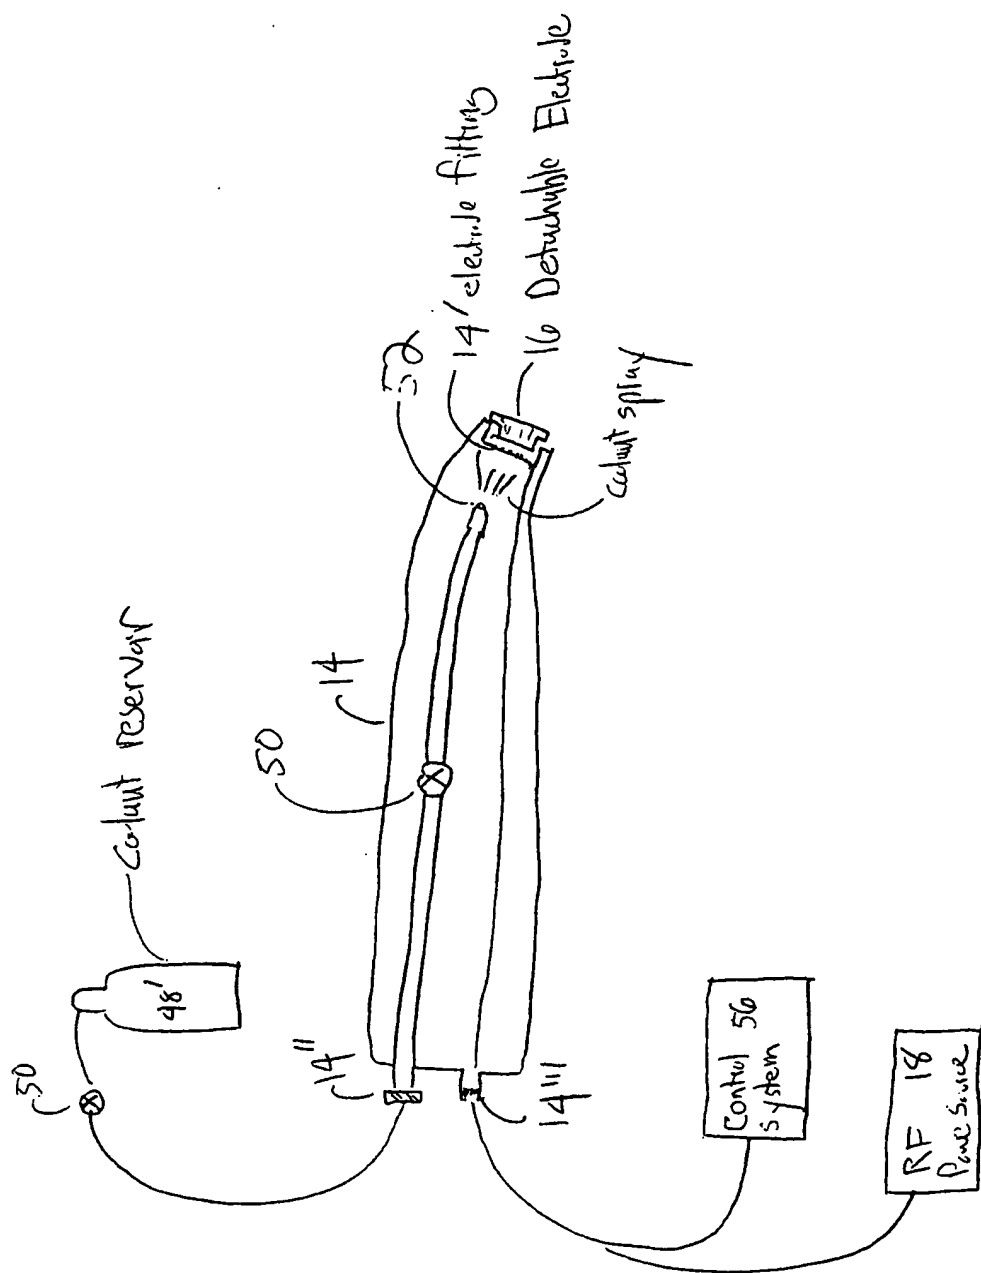 50
48'
Coolant reservoir
14"
50
14
52
14' electrode fitting
16 Detachable Electrode
coolant spray
14'''
Control 56
System
RF 18
Power Source